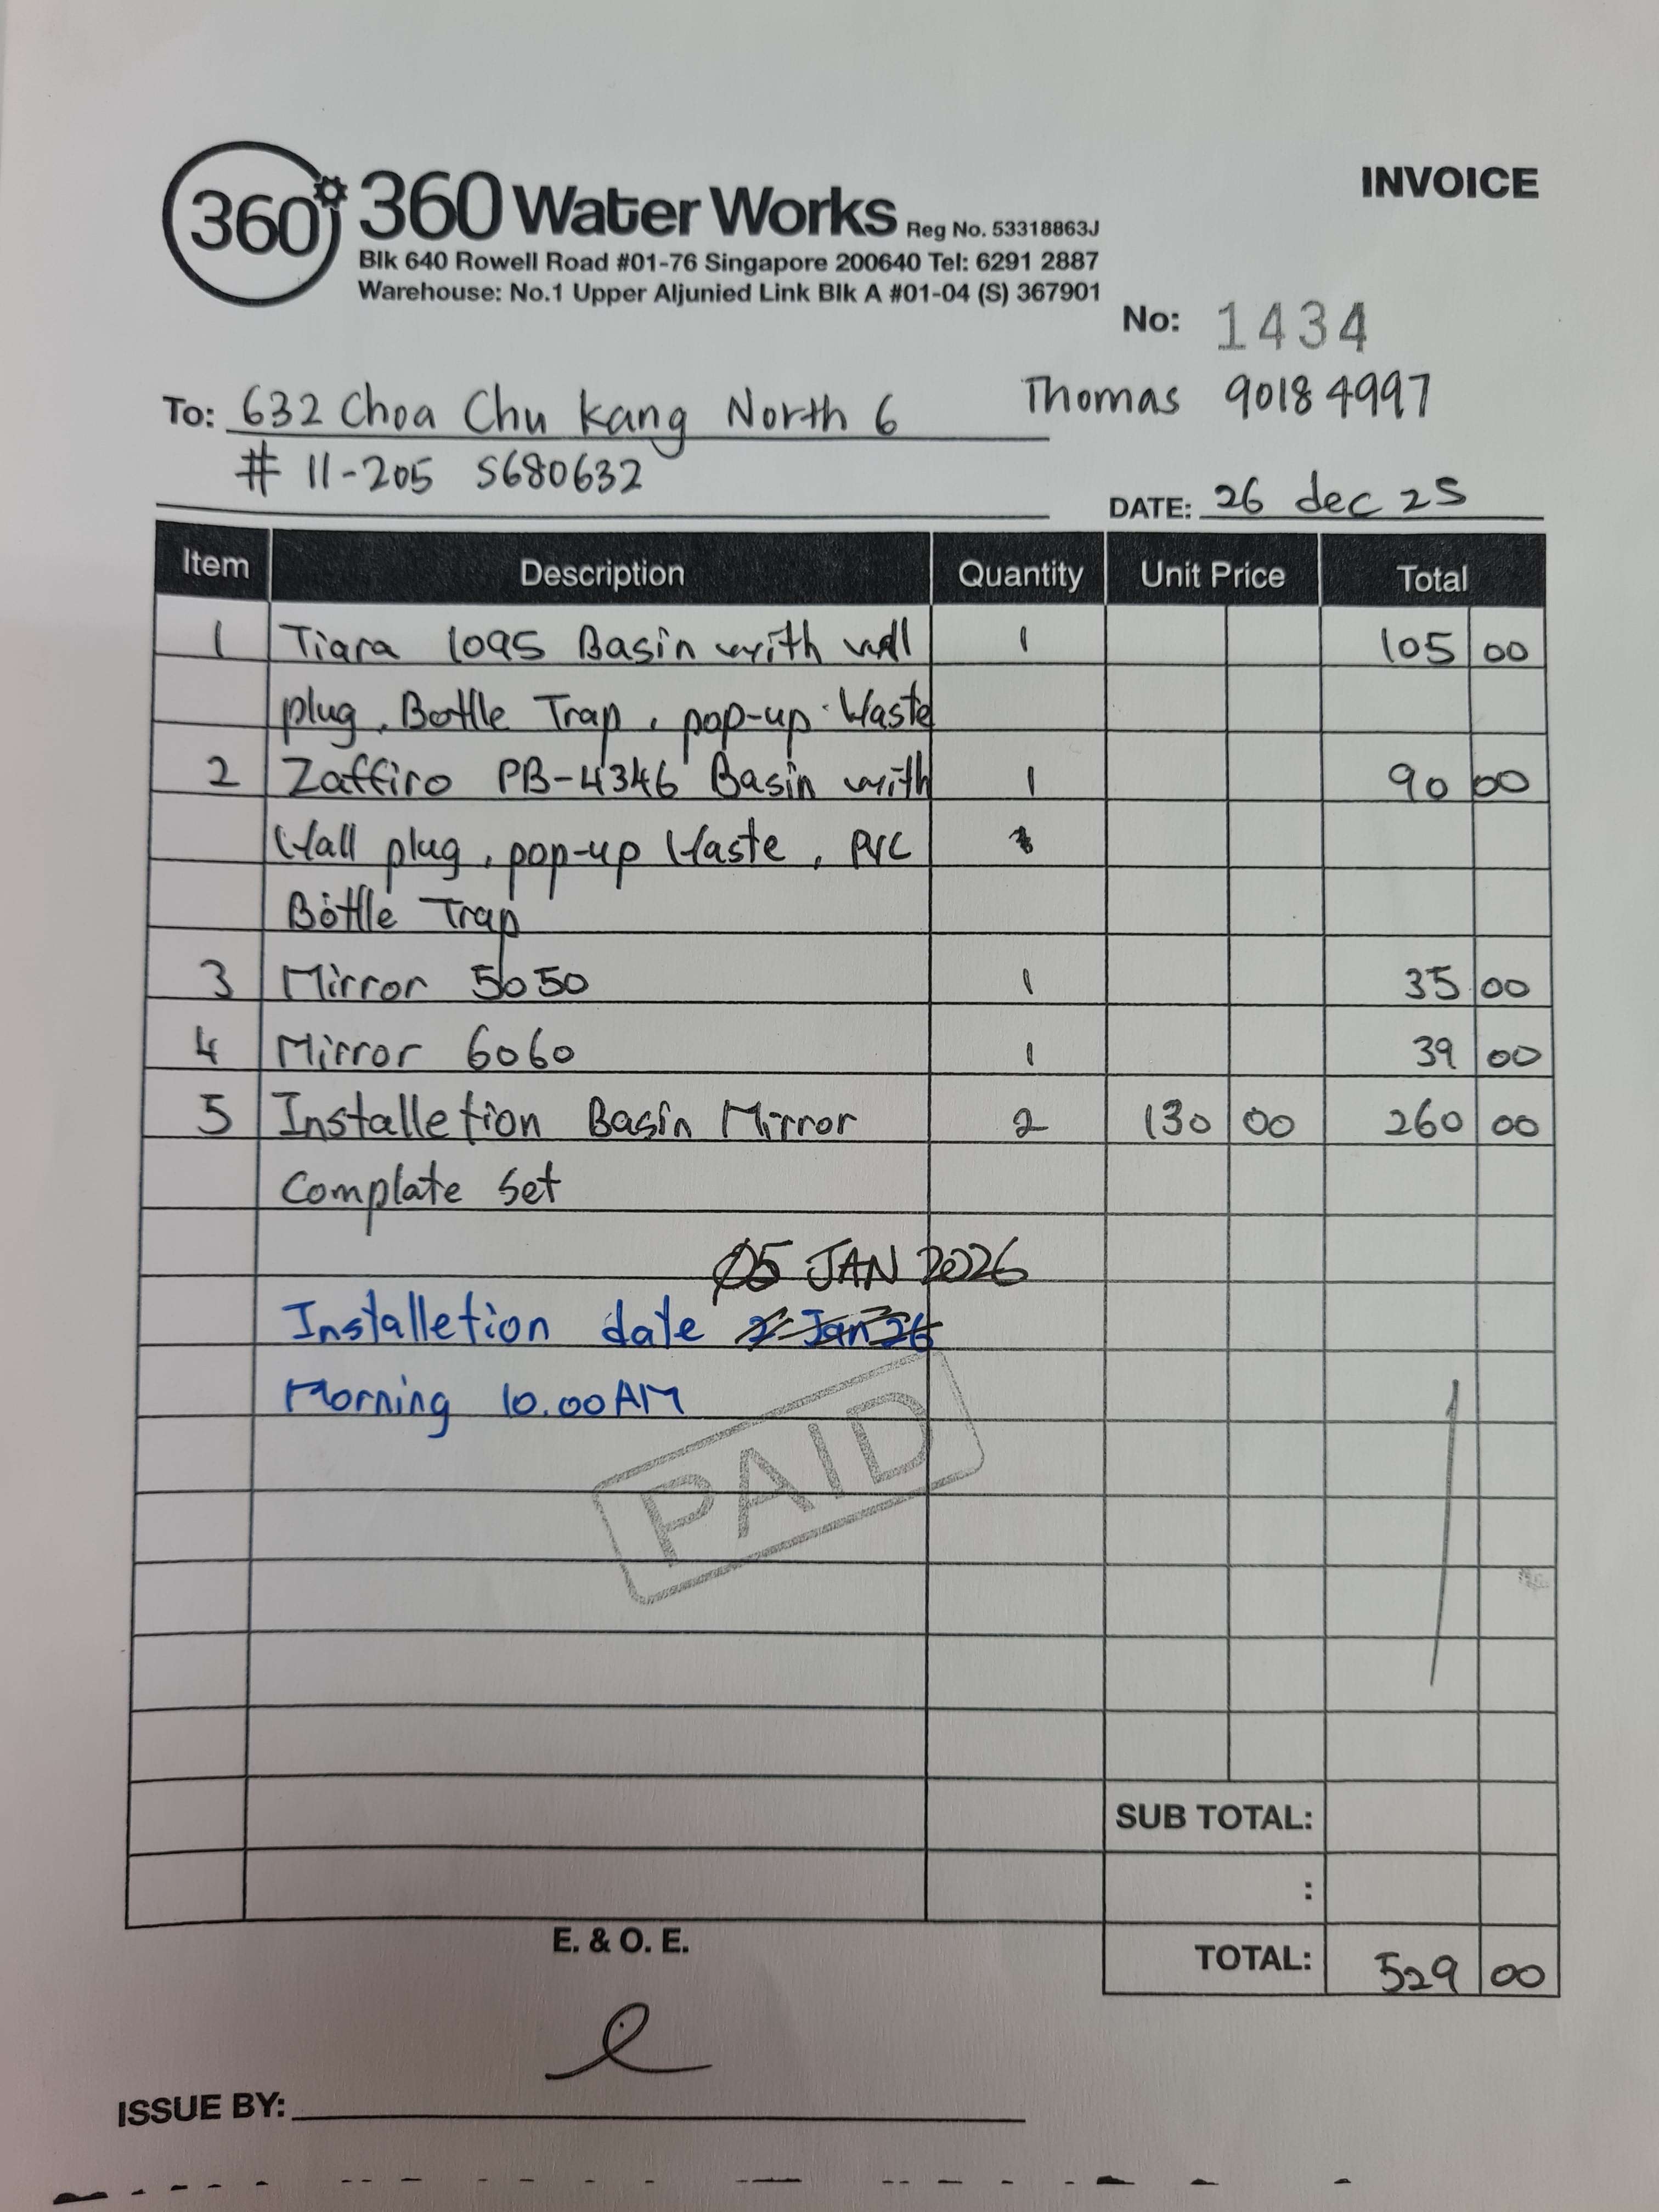 INVOICE
360° 360 Water Works Reg No. 53318863J
Blk 640 Rowell Road #01-76 Singapore 200640 Tel: 6291 2887
Warehouse: No.1 Upper Aljunied Link Blk A #01-04 (S) 367901
No: 1434
Thomas 9018 4997
To: 632 Choa Chu Kang North 6
# 11-205 S680632
DATE: 26 dec 25
Item Description Quantity Unit Price Total
1 Tiara 1095 Basin with wall 1 105 00
plug, Bottle Trap, pop-up Waste
2 Zaffiro PB-4346 Basin with 1 90 00
Wall plug, pop-up Waste, PVC
Bottle Trap
3 Mirror 5050 1 35 00
4 Mirror 6060 1 39 00
5 Installetion Basin Mirror 2 130 00 260 00
Complate set
05 JAN 2026
Installetion date 2 Jan 26
Morning 10.00AM
PAID
SUB TOTAL:
:
E. & O. E.
TOTAL: 529 00
ISSUE BY: